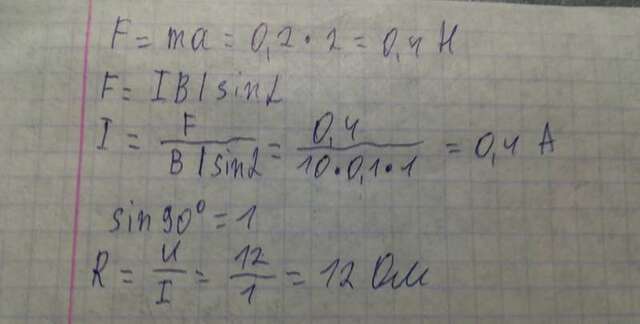 F = ma = 0,2 · 2 = 0,4 Н
F = IBlsinα
I = F / Blsinα = 0,4 / 10·0,1·1 = 0,4 А
sin90° = 1
R = U / I = 12 / 1 = 12 Ом